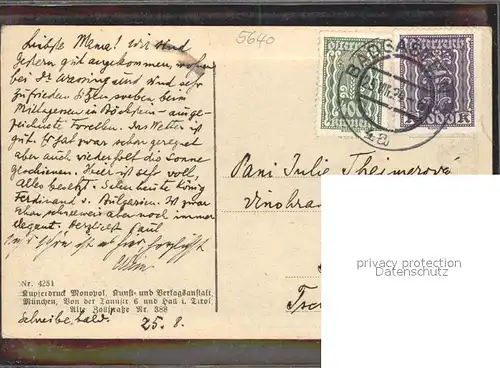 5640
Liebste Mama! Wir sind
gestern gut angekommen, wohnen
bei Dr. Wassing und sind sehr
zufrieden. Sitzen soeben beim
Mittagessen in Böckstein – ausge-
zeichnete Forellen. Das Wetter ist
gut. Es hat zwar schon geregnet
aber auch wiederholt die Sonne
geschienen. Hier ist sehr voll,
Alles besetzt. Sehen heute König
Ferdinand v. Bulgarien. Ist zwar
schon aber noch immer
elegant. Herzlichst Paul
Nr. 4251
Kupferdruck Monopol, Kunst- und Verlagsanstalt,
München, Von der Tannstr. 6 und Hall i. Tirol,
Alte Zollstraße Nr. 388
Schreibe bald.
25. 8.
österreich
Kronen
österreich
K
BADGAST
4a
Pani Julie Theimerová
Vinohra
Tsch
PRIVACY PROTECTION
privacy@delcampe.com